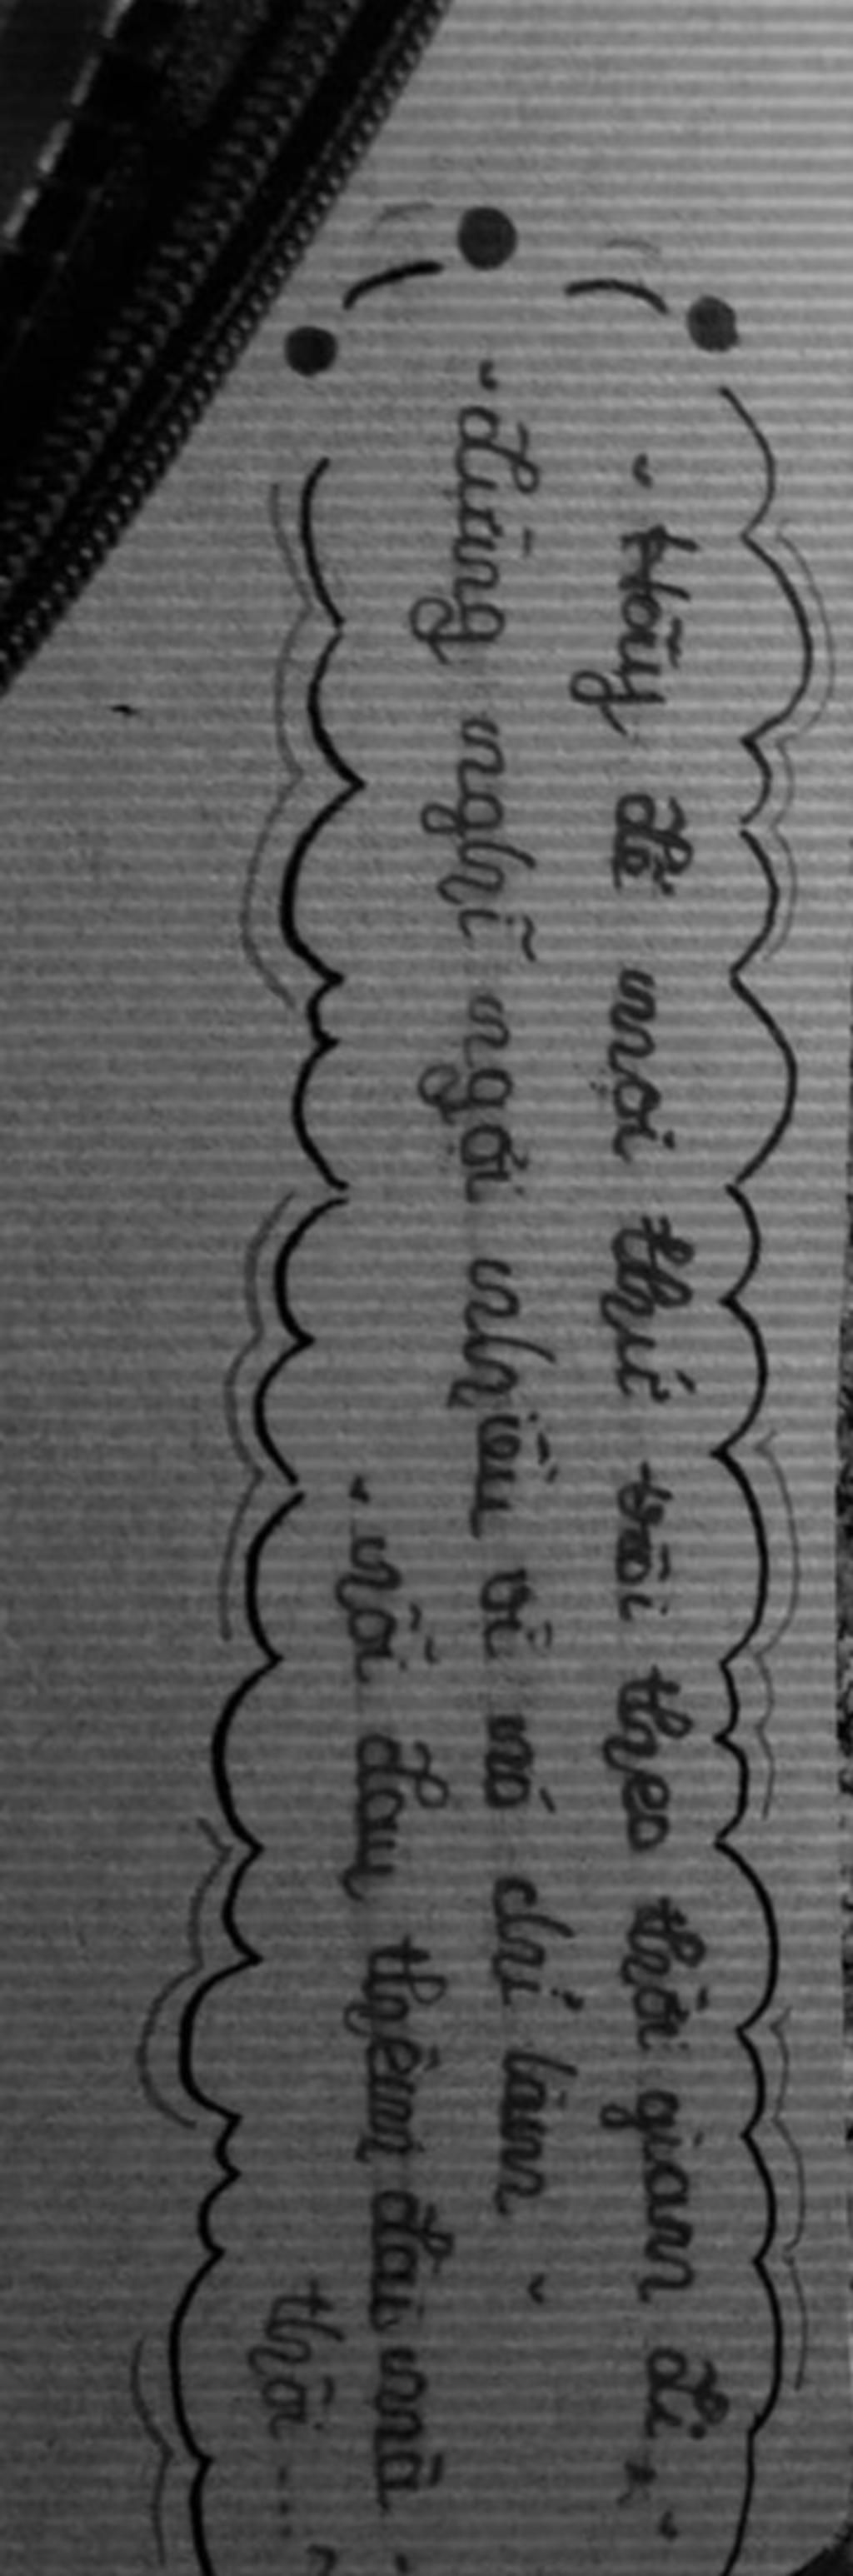 - Hãy để mọi thứ trôi theo thời gian đi
- đừng nghĩ ngợi nhiều vì nó chỉ làm
- nỗi đau thêm dài mà
thôi ...